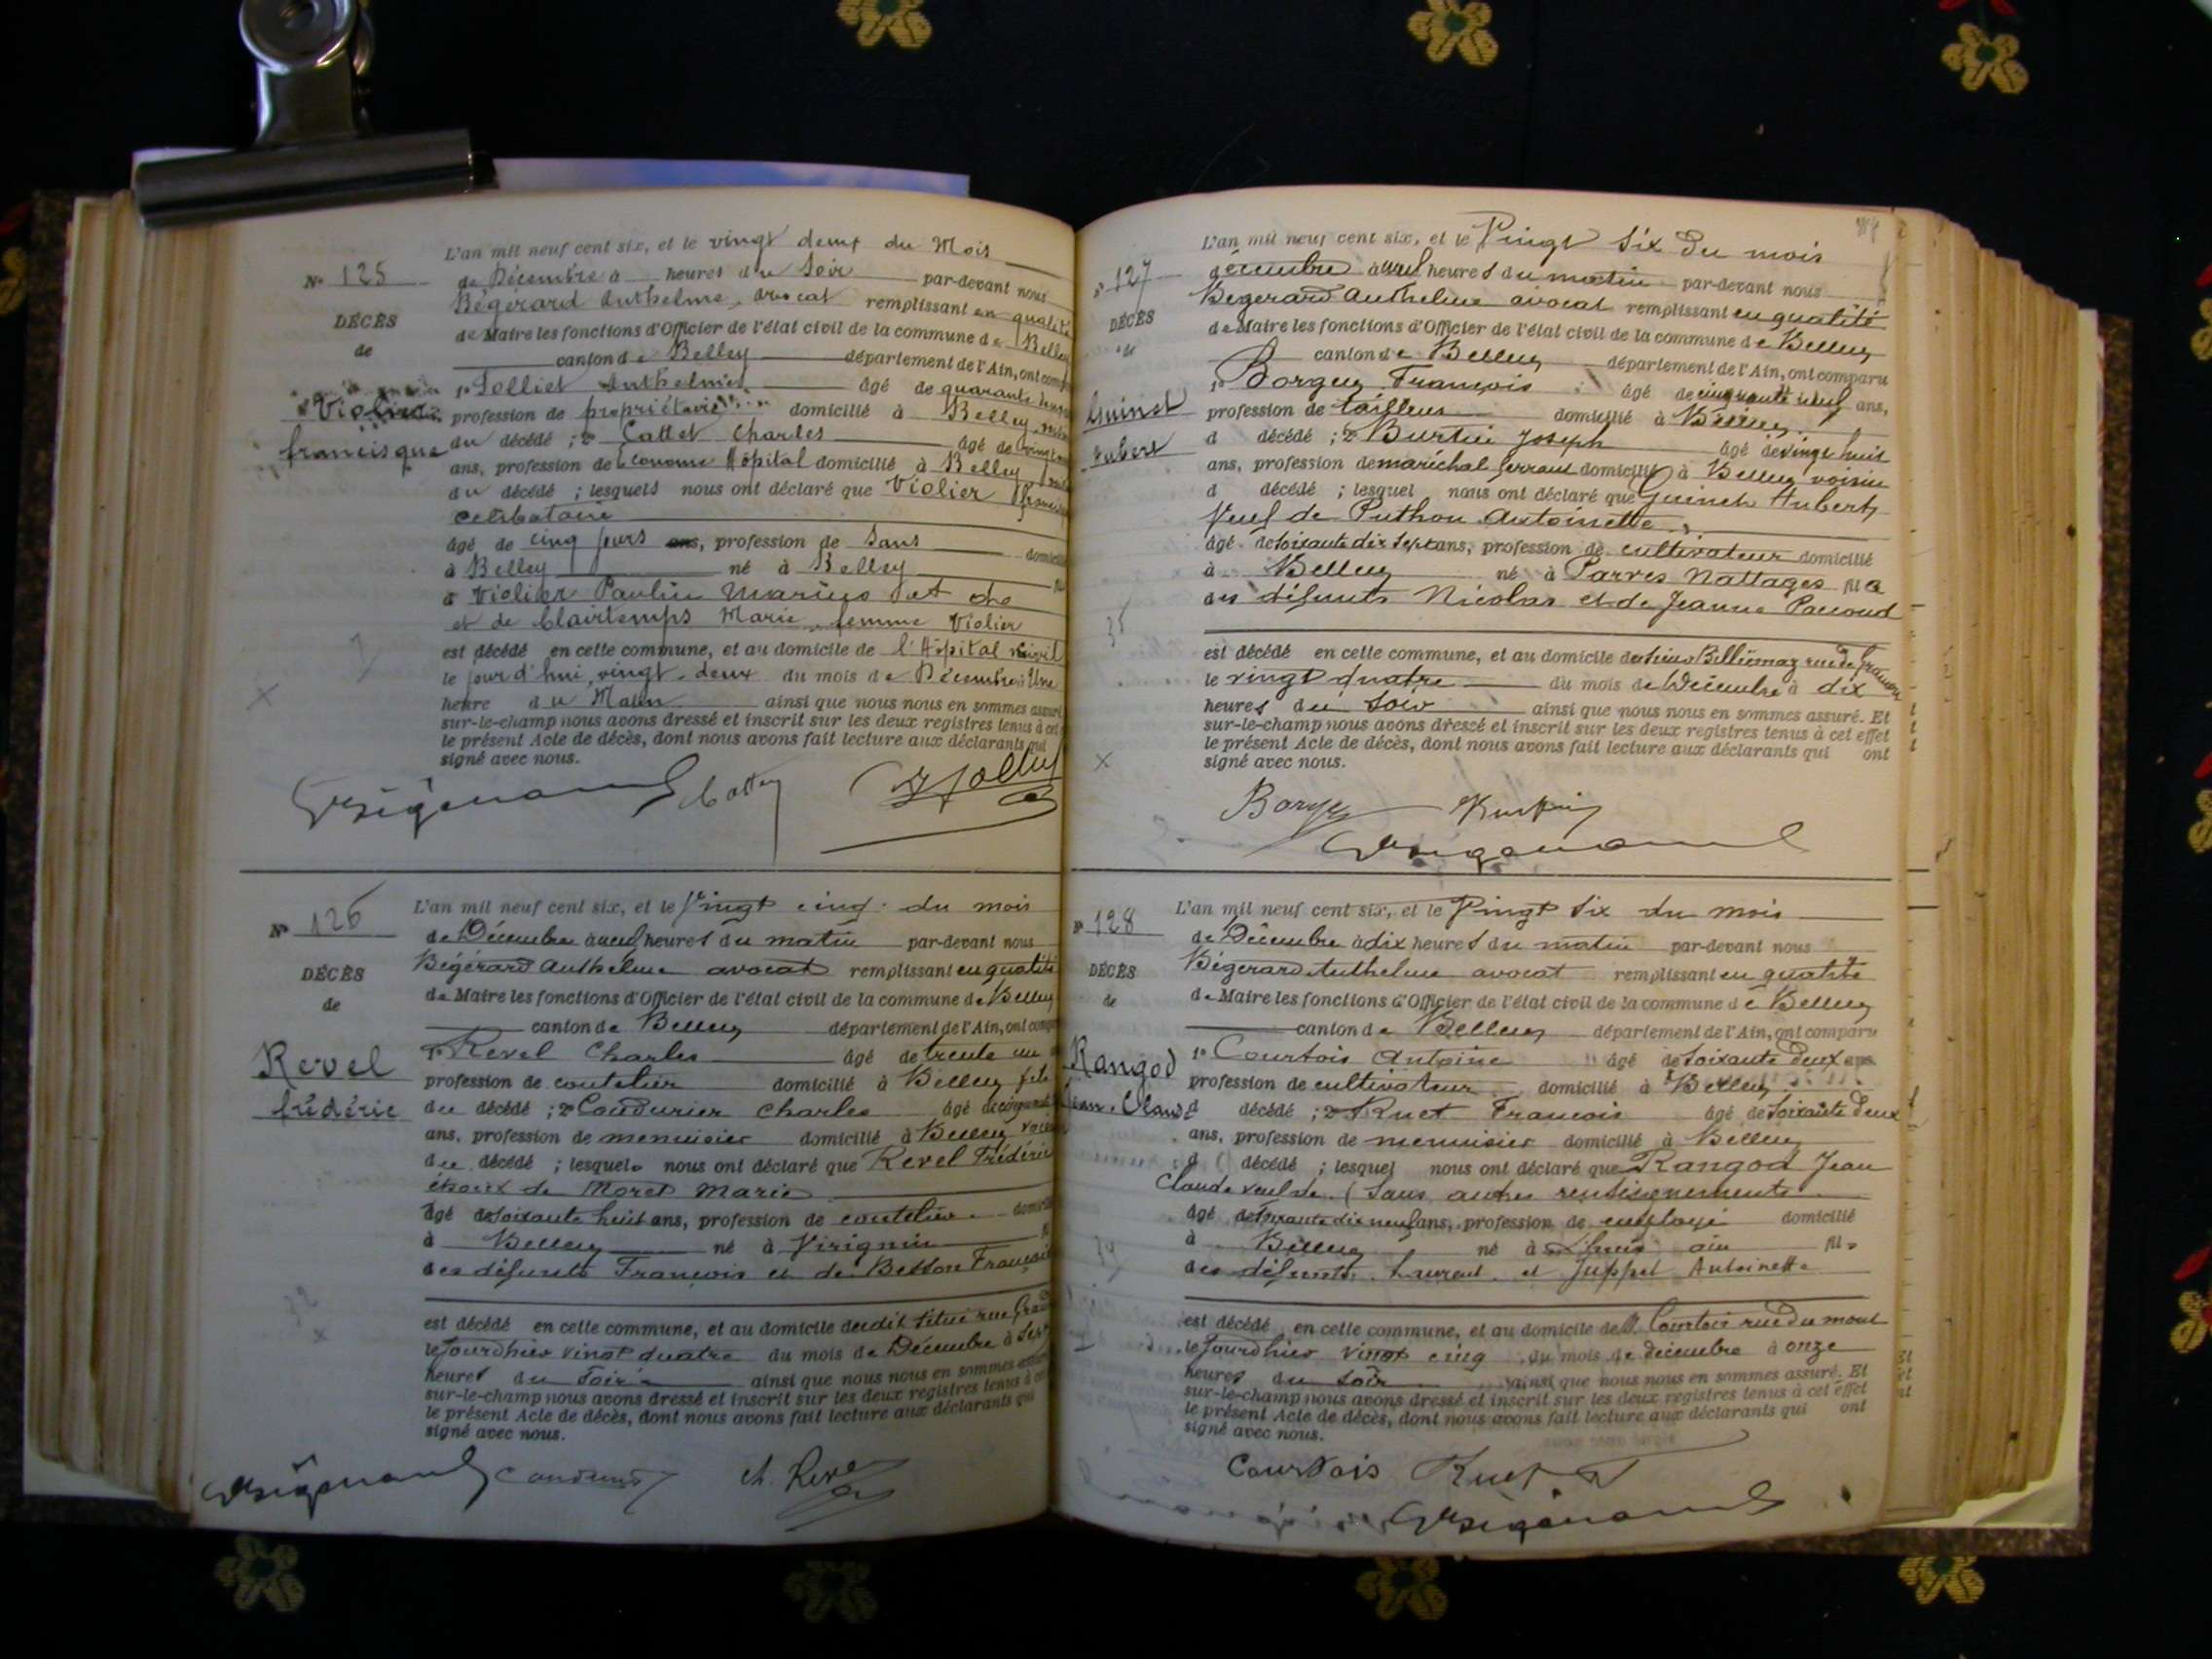 N° 125
DÉCÈS
de
Violier
francisque
L'an mil neuf cent six, et le vingt deux du Mois
de Décembre à heures du Soir par-devant nous
Bégerard Anthelme, avocat remplissant en qualité
de Maire les fonctions d'Officier de l'état civil de la commune de Belley
canton de Belley département de l'Ain, ont comp
1° Jolliet Anthelme âgé de quarante
profession de propriétaire domicilié à Belley
du décédé ; 2° Cattet Charles âgé de
ans, profession de Econome Hôpital domicilié à Belley
du décédé ; lesquels nous ont déclaré que Violier
célibataire
âgé de cinq jours ans, profession de Sans domicilié
à Belley né à Belley
d Violier Paulin Marius et de
et de Clairtemps Marie femme Violier
est décédé en cette commune, et au domicile de l'Hôpital
le jour d'hui vingt-deux du mois de Décembre à Une
heure du Matin ainsi que nous nous en sommes assuré
sur-le-champ nous avons dressé et inscrit sur les deux registres tenus à cet
le présent Acte de décès, dont nous avons fait lecture aux déclarants qui
signé avec nous.
N° 126
DÉCÈS
de
Revel
frédéric
L'an mil neuf cent six, et le Vingt cinq du mois
de Décembre à neuf heures du matin par-devant nous
Bégérard Anthelme avocat remplissant en qualité
de Maire les fonctions d'Officier de l'état civil de la commune de Belley
canton de Belley département de l'Ain, ont comp
1° Revel Charles âgé de trente un
profession de coutelier domicilié à Belley fils
du décédé ; 2° Coudurier Charles âgé de
ans, profession de menuisier domicilié à Belley
du décédé ; lesquels nous ont déclaré que Revel Frédéric
époux de Moret Marie
âgé de soixante huit ans, profession de coutelier domicilié
à Belley né à Virignin
des défunts François et de Betton
est décédé en cette commune, et au domicile dudit situé rue
le jourd'hier vingt quatre du mois de Décembre à Sept
heures du Soir ainsi que nous nous en sommes assuré
sur-le-champ nous avons dressé et inscrit sur les deux registres tenus à cet
le présent Acte de décès, dont nous avons fait lecture aux déclarants qui
signé avec nous.
Ch. Revel
N° 127
DÉCÈS
de
Guinet
Hubert
L'an mil neuf cent six, et le Vingt Six du mois
décembre à neuf heures du matin par-devant nous
Bégerard Anthelme avocat remplissant en qualité
de Maire les fonctions d'Officier de l'état civil de la commune de Belley
canton de Belley département de l'Ain, ont comparu
1° Borgey François âgé de cinquante neuf ans,
profession de tailleur domicilié à Belley
d décédé ; 2° Burtin Joseph âgé de vingt huit
ans, profession de maréchal ferrant domicilié à Belley voisin
d décédé ; lesquel nous ont déclaré que Guinet Hubert
Veuf de Puthon Antoinette
âgé de soixante dix sept ans, profession de cultivateur domicilié
à Belley né à Parves Nattages fils
des défunts Nicolas et de Jeanne
est décédé en cette commune, et au domicile
le vingt quatre du mois de Décembre à dix
heures du Soir ainsi que nous nous en sommes assuré. Et
sur-le-champ nous avons dressé et inscrit sur les deux registres tenus à cet effet
le présent Acte de décès, dont nous avons fait lecture aux déclarants qui ont
signé avec nous.
N° 128
DÉCÈS
de
Rangod
Jean-Claude
L'an mil neuf cent six, et le Vingt Six du mois
de Décembre à dix heures du matin par-devant nous
Bégerard Anthelme avocat remplissant en qualité
de Maire les fonctions d'Officier de l'état civil de la commune de Belley
canton de Belley département de l'Ain, ont comparu
1° Courtois Antoine âgé de soixante deux ans
profession de cultivateur domicilié à Belley
d décédé ; 2° Ruet François âgé de soixante deux
ans, profession de menuisier domicilié à Belley
d décédé ; lesquel nous ont déclaré que Rangod Jean
Claude veuf de (Sans autres renseignements
âgé de ans, profession de employé domicilié
à Belley né à Lhuis ain fils
des défunts Laurent et Juppet Antoinette
est décédé en cette commune, et au domicile de M. Courtois rue du mont
le jourd'hier vingt cinq du mois de décembre à onze
heures du Soir ainsi que nous nous en sommes assuré. Et
sur-le-champ nous avons dressé et inscrit sur les deux registres tenus à cet effet
le présent Acte de décès, dont nous avons fait lecture aux déclarants qui ont
signé avec nous.
Courtois Ruet